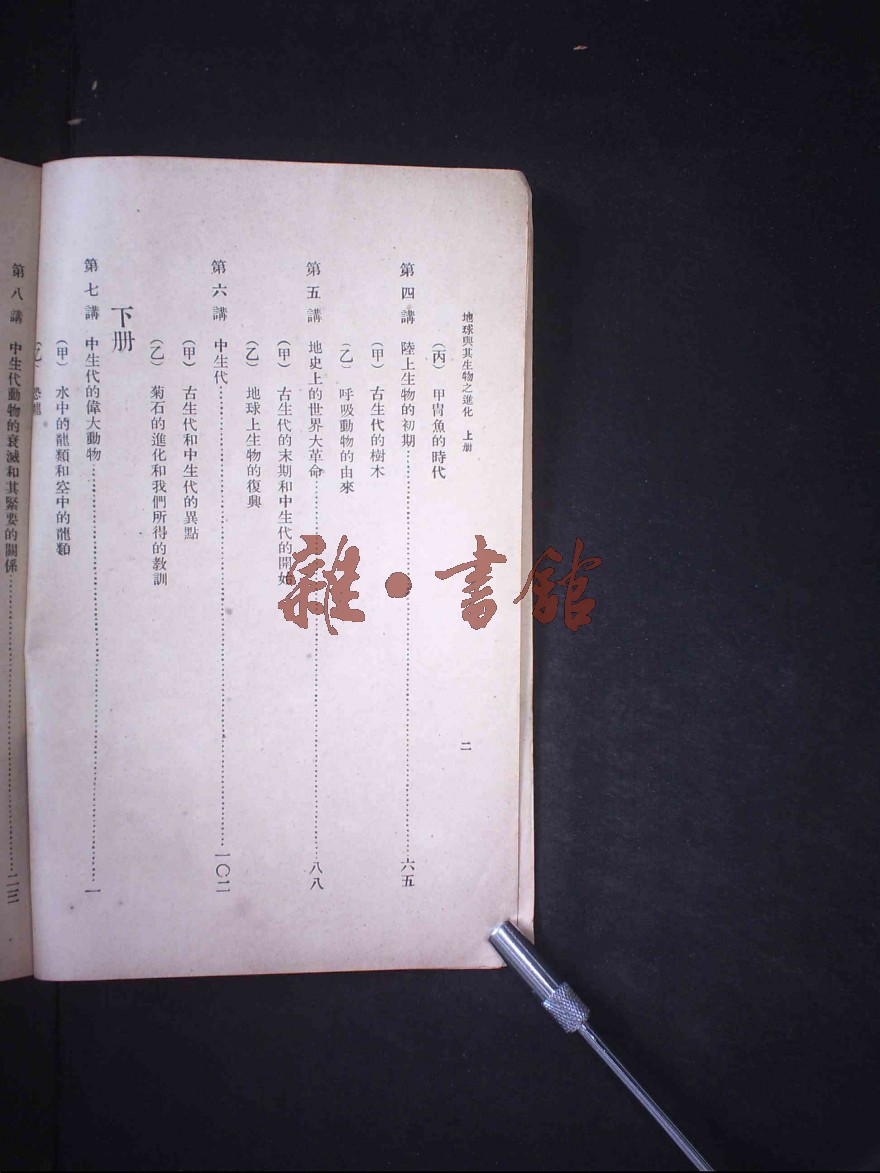 地球與其生物之進化　上册
二
（丙）　甲冑魚的時代
第四講　陸上生物的初期……六五
（甲）　古生代的樹木
（乙）　呼吸動物的由來
第五講　地史上的世界大革命……八八
（甲）　古生代的末期和中生代的開始
（乙）　地球上生物的復興
第六講　中生代……一〇二
（甲）　古生代和中生代的異點
（乙）　菊石的進化和我們所得的教訓
下册
第七講　中生代的偉大動物……一
（甲）　水中的龍類和空中的龍類
（乙）　恐龍
第八講　中生代動物的衰滅和其緊要的關係……二三
雜・書館